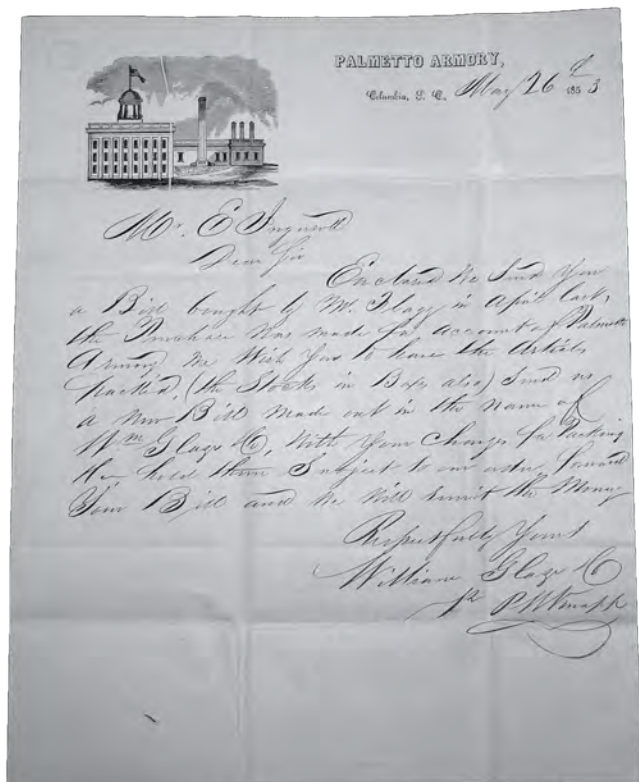 PALMETTO ARMORY,
Columbia, S. C. May 26th 1853
Mr. E Ingersoll
Dear Sir
Enclosed We Send You
a Bill bought by Mr. Flagg in April last,
the Purchase was made for account of Palmetto
Armory We Wish You to have the Articles
packed, (the Stocks in Boxes also) Send us
a New Bill made out in the name of
Wm Glaze & Co, With Your Charges for Packing
& hold them Subject to our order, forward
Your Bill and We Will remit the Money
Respectfully Yours
William Glaze & Co